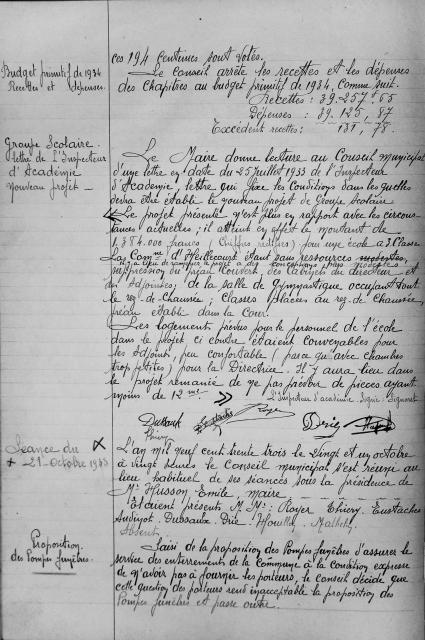 ces 194 centimes sont votés.
Budget primitif de 1934
Recettes et dépenses.
Le Conseil arrête les recettes et les dépenses
des Chapitres au budget primitif de 1934, comme suit.
Recettes : 39.257.65
Dépenses : 39.125,87
Excédent recettes : 131,78.
Groupe Scolaire.
lettre de l'Inspecteur
d'Académie
nouveau projet _
Le Maire donne lecture au Conseil municipal
d'une lettre en date du 25 juillet 1933 de l'Inspecteur
d'Académie, lettre qui fixe les conditions dans lesquelles
devra être établi le nouveau projet de Groupe Scolaire
« Le projet présenté n'est plus en rapport avec les circons-
tances actuelles ; il atteint en effet le montant de
1,384.000 francs (Chiffres réduits) pour une école à 3 Classes
La Comne d'Heillecourt étant sans ressources
suppression du préau couvert, des cabinets du directeur et
des adjointes ; de la salle de Gymnastique occupant tout
le rez-de-Chaussée ; Classes placées au rez-de-Chaussée,
préau établi dans la Cour.
Les logements prévus pour le personnel de l'école
dans le projet ci contre étaient convenables pour
les adjoints, peu confortable (parce qu'avec chambres
trop petites) pour la Directrice. Il y aura lieu dans
le projet remanié de ne pas prévoir de pièces ayant
moins de 12 m² »
L'Inspecteur d'académie. Signé :
Séance du
21 Octobre 1933
L'an mil neuf cent trente trois le vingt et un octobre
à vingt heures le Conseil municipal s'est réuni au
lieu habituel de ses séances sous la présidence de
Mr Husson Emile, maire _
Etaient présents M.M. : Royer Thiéry, Eustaches
Dussaux
Absent
Proposition
des Pompes funèbres.
Saisi de la proposition des Pompes funèbres d'assurer le
service des enterrements de la Commune à la condition expresse
de n'avoir pas à fournir les porteurs, le conseil décide que
cette question des porteurs rend inacceptable la proposition des
Pompes funèbres et passe outre.